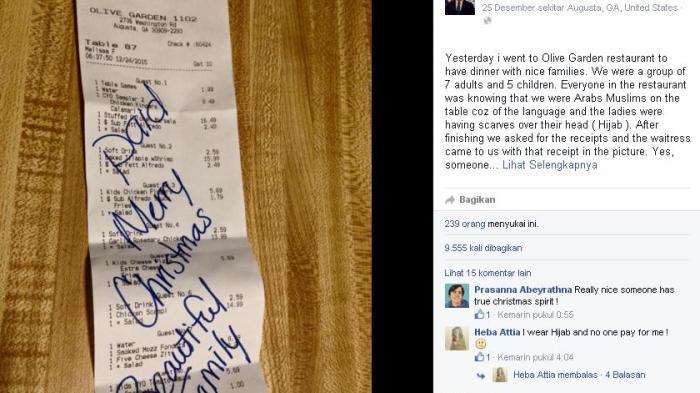 OLIVE GARDEN 1102
2736 Washington Rd
Augusta, GA 30909-2293
Table 87
Check #
Melissa F
06:37:50 12/24/2015
Gst 10
Guest No.1
1 Table Games 1.99
1 Water
1 CYO Sampler 2 9.49
Chicken Fingers
Calamari
1 Stuffed 16.49
1 $ Sub Fett Alfredo 2.49
1 * Salad
Guest No.2
1 Soft Drink 2.59
1 Baked Tilapia w/Shrimp 15.99
1 $ Sub Fett Alfredo 2.49
1 * Salad
Guest No.3
1 Kids Chicken 5.69
1 $ Sub Alfredo 1.79
Fries
1 * Salad
Guest No.4
1 Soft 2.59
1 Garlic Rosemary Chicken
1 * Salad
1 Kids Cheese 5.69
Extra Cheese
Fries
1 Soft Drink 2.59
1 Chicken Scampi
1 * Salad
1 Water
1 Smoked Mozz
1 Five Cheese Ziti
1 * Salad
1 Kids
1.00
Paid
Merry
Christmas
Beautiful
Family
25 Desember sekitar Augusta, GA, United States ·
Yesterday i went to Olive Garden restaurant to
have dinner with nice families. We were a group of
7 adults and 5 children. Everyone in the restaurant
was knowing that we were Arabs Muslims on the
table coz of the language and the ladies were
having scarves over their head ( Hijab ). After
finishing we asked for the receipts and the waitress
came to us with that receipt in the picture. Yes,
someone... Lihat Selengkapnya
Bagikan
239 orang menyukai ini.
9.555 kali dibagikan
Lihat 15 komentar lain
Prasanna Abeyrathna Really nice someone has
true christmas spirit !
1 · Kemarin pukul 0:55
Heba Attia I wear Hijab and no one pay for me !
1 · Kemarin pukul 4:04
Heba Attia membalas · 4 Balasan